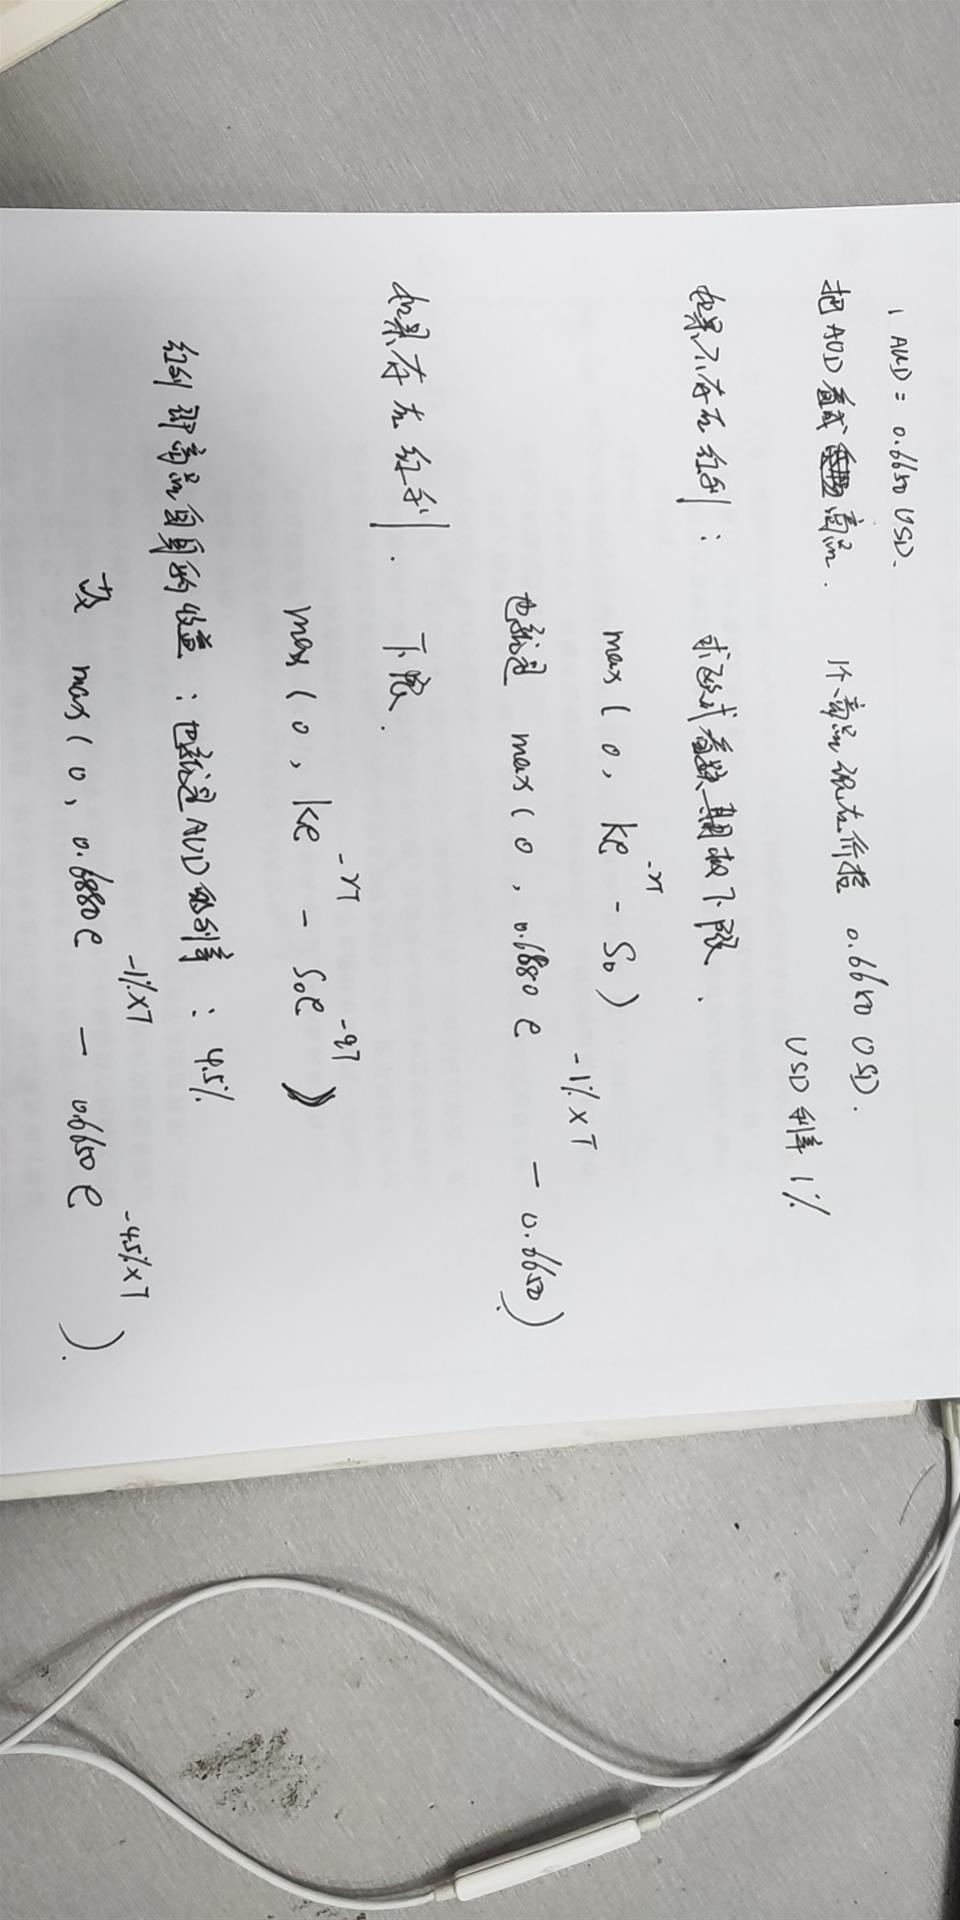 1 AUD = 0.6650 USD.
把AUD看成商品. 1个商品现在价格 0.6650 USD.
USD利率 1%
如果不存在红利: 求欧式看跌期权下限.
max ( 0, ke^-rT - S0 )
也就是 max ( 0, 0.6880 e^-1%×T - 0.6650 )
如果存在红利. 下限.
max ( 0, ke^-rT - S0e^-qT )
红利即商品自身的收益: 也就是AUD的利率: 4.5%
故 max ( 0, 0.6880e^-1%×T - 0.6650e^-4.5%×T ).